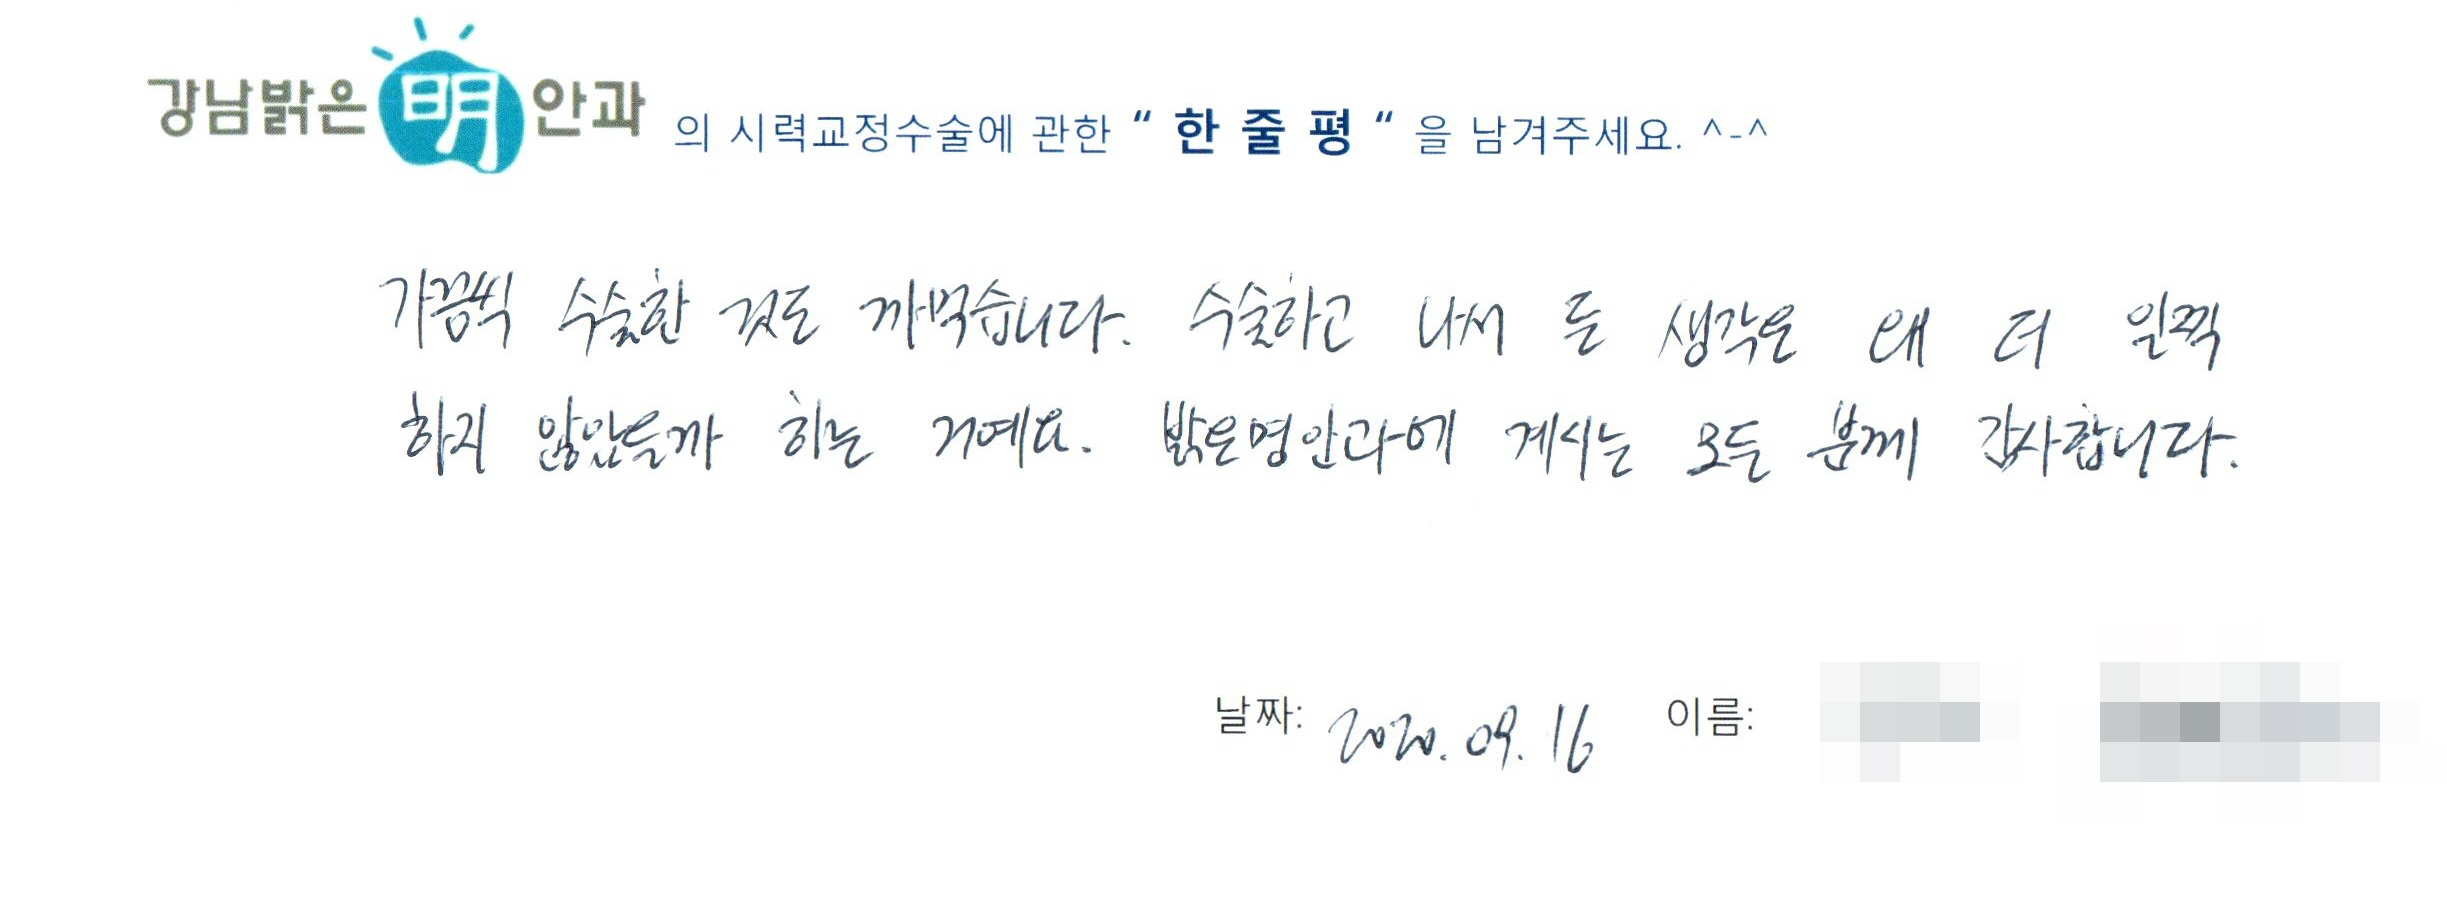 강남밝은明안과 의 시력교정수술에 관한 “ 한 줄 평 “ 을 남겨주세요. ^-^
가끔씩 수술한 것도 까먹습니다. 수술하고 나서 든 생각은 왜 더 일찍
하지 않았을까 하는 거예요. 밝은명안과에 계시는 모든 분께 감사합니다.
날짜: 2020. 09. 16 이름: